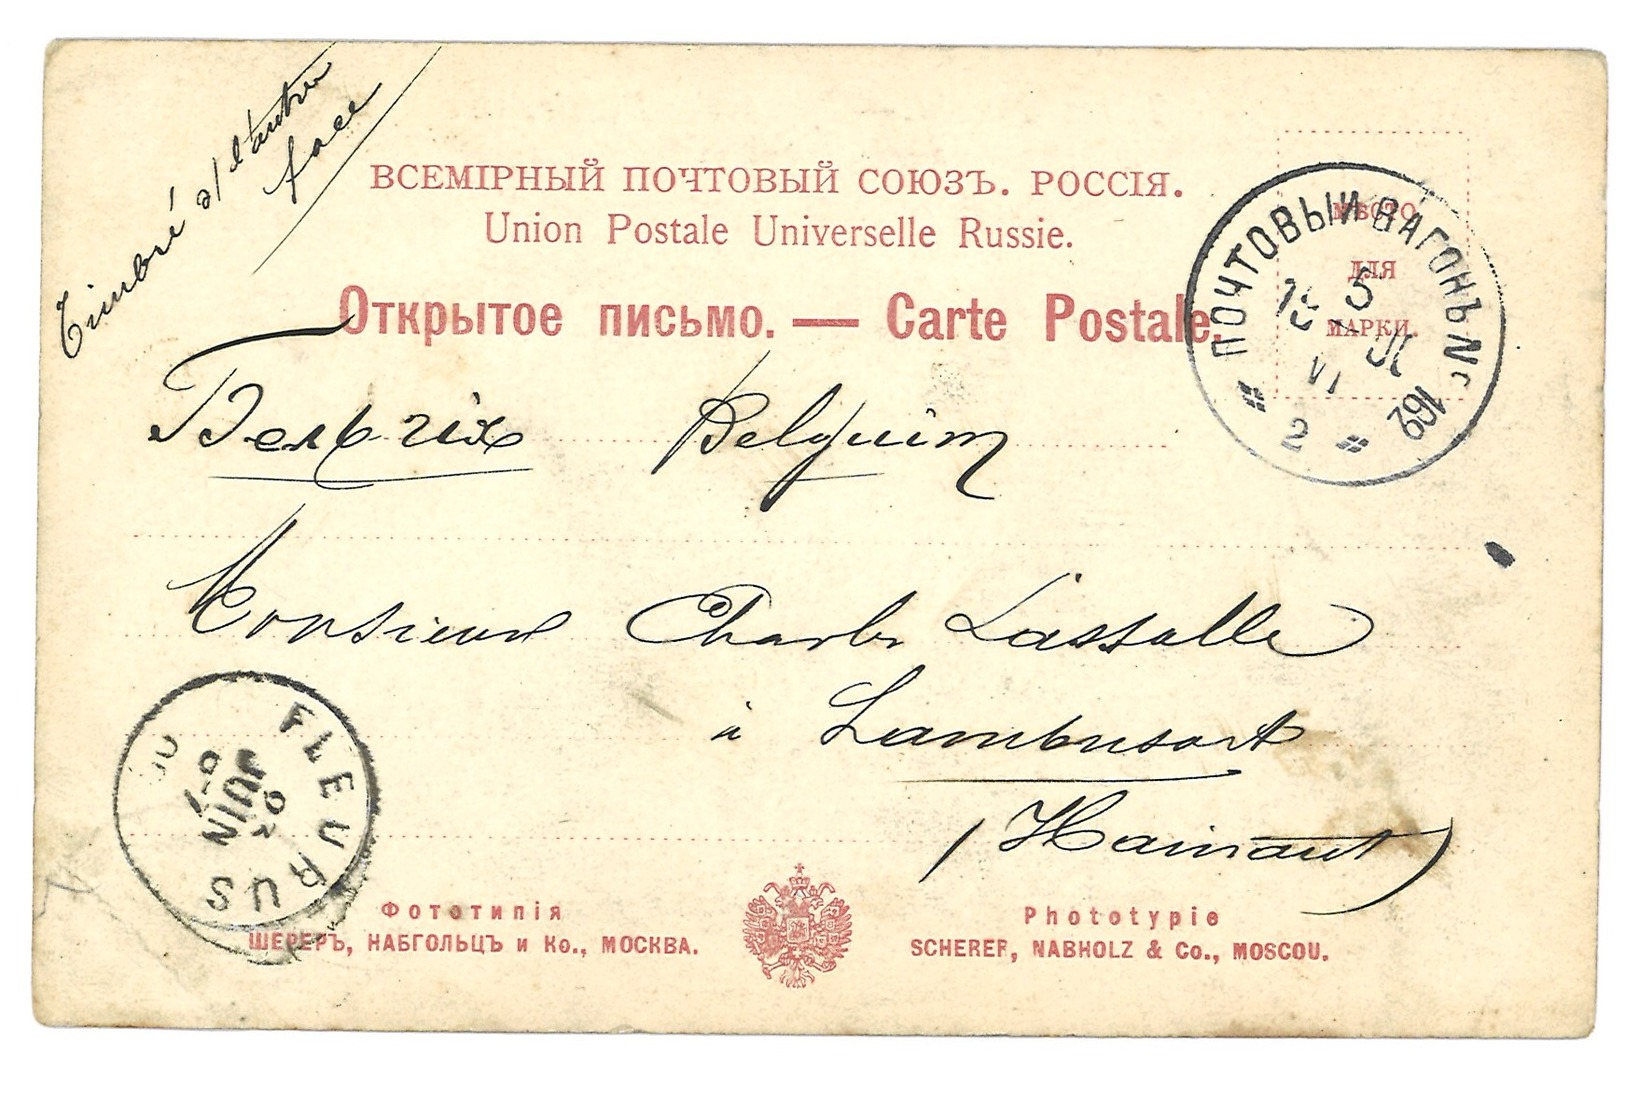 Timbré à l'autre
face
ВСЕМІРНЫЙ ПОЧТОВЫЙ СОЮЗЪ. РОССІЯ.
Union Postale Universelle Russie.
Открытое письмо. — Carte Postale.
МѢСТО
ДЛЯ
МАРКИ.
ПОЧТОВЫЙ ВАГОНЪ № 162
5
VI
2
Бельгіх Belguim
Monsieur Charles Lassalle
à Lambusart
(Hainaut)
FLEURUS
JUIN
Фототипія
ШЕРЕРЪ, НАБГОЛЬЦЪ и Ко., МОСКВА.
Phototypie
SCHERER, NABHOLZ & Co., MOSCOU.